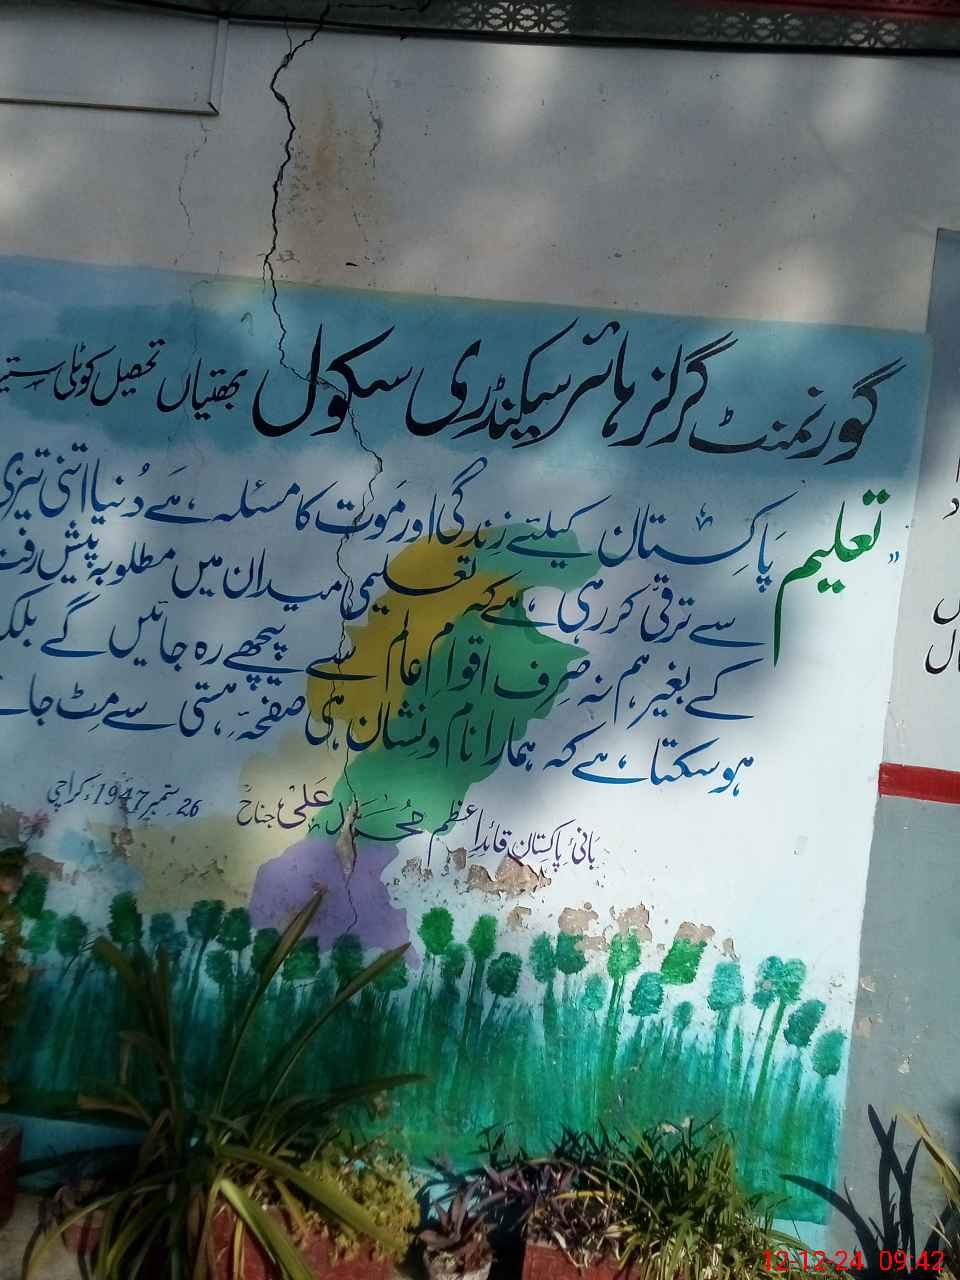 گورنمنٹ گرلز ہائر سیکنڈری سکول بھقیاں تحصیل کوٹلی
" تعلیم پاکستان کیلئے زندگی اور موت کا مسئلہ ہے دُنیا اتنی تیزی
سے ترقی کر رہی ہے کہ تعلیمی میدان میں مطلوبہ پیش رفت
کے بغیر ہم نہ صرف اقوامِ عالم سے پیچھے رہ جائیں گے بلکہ
ہو سکتا ہے کہ ہمارا نام و نشان ہی صفحہِ ہستی سے مٹ جائے
بانیٔ پاکستان قائدِاعظم محمد علی جناح 26 ستمبر 1947ء کراچی
12-12-24 09:42